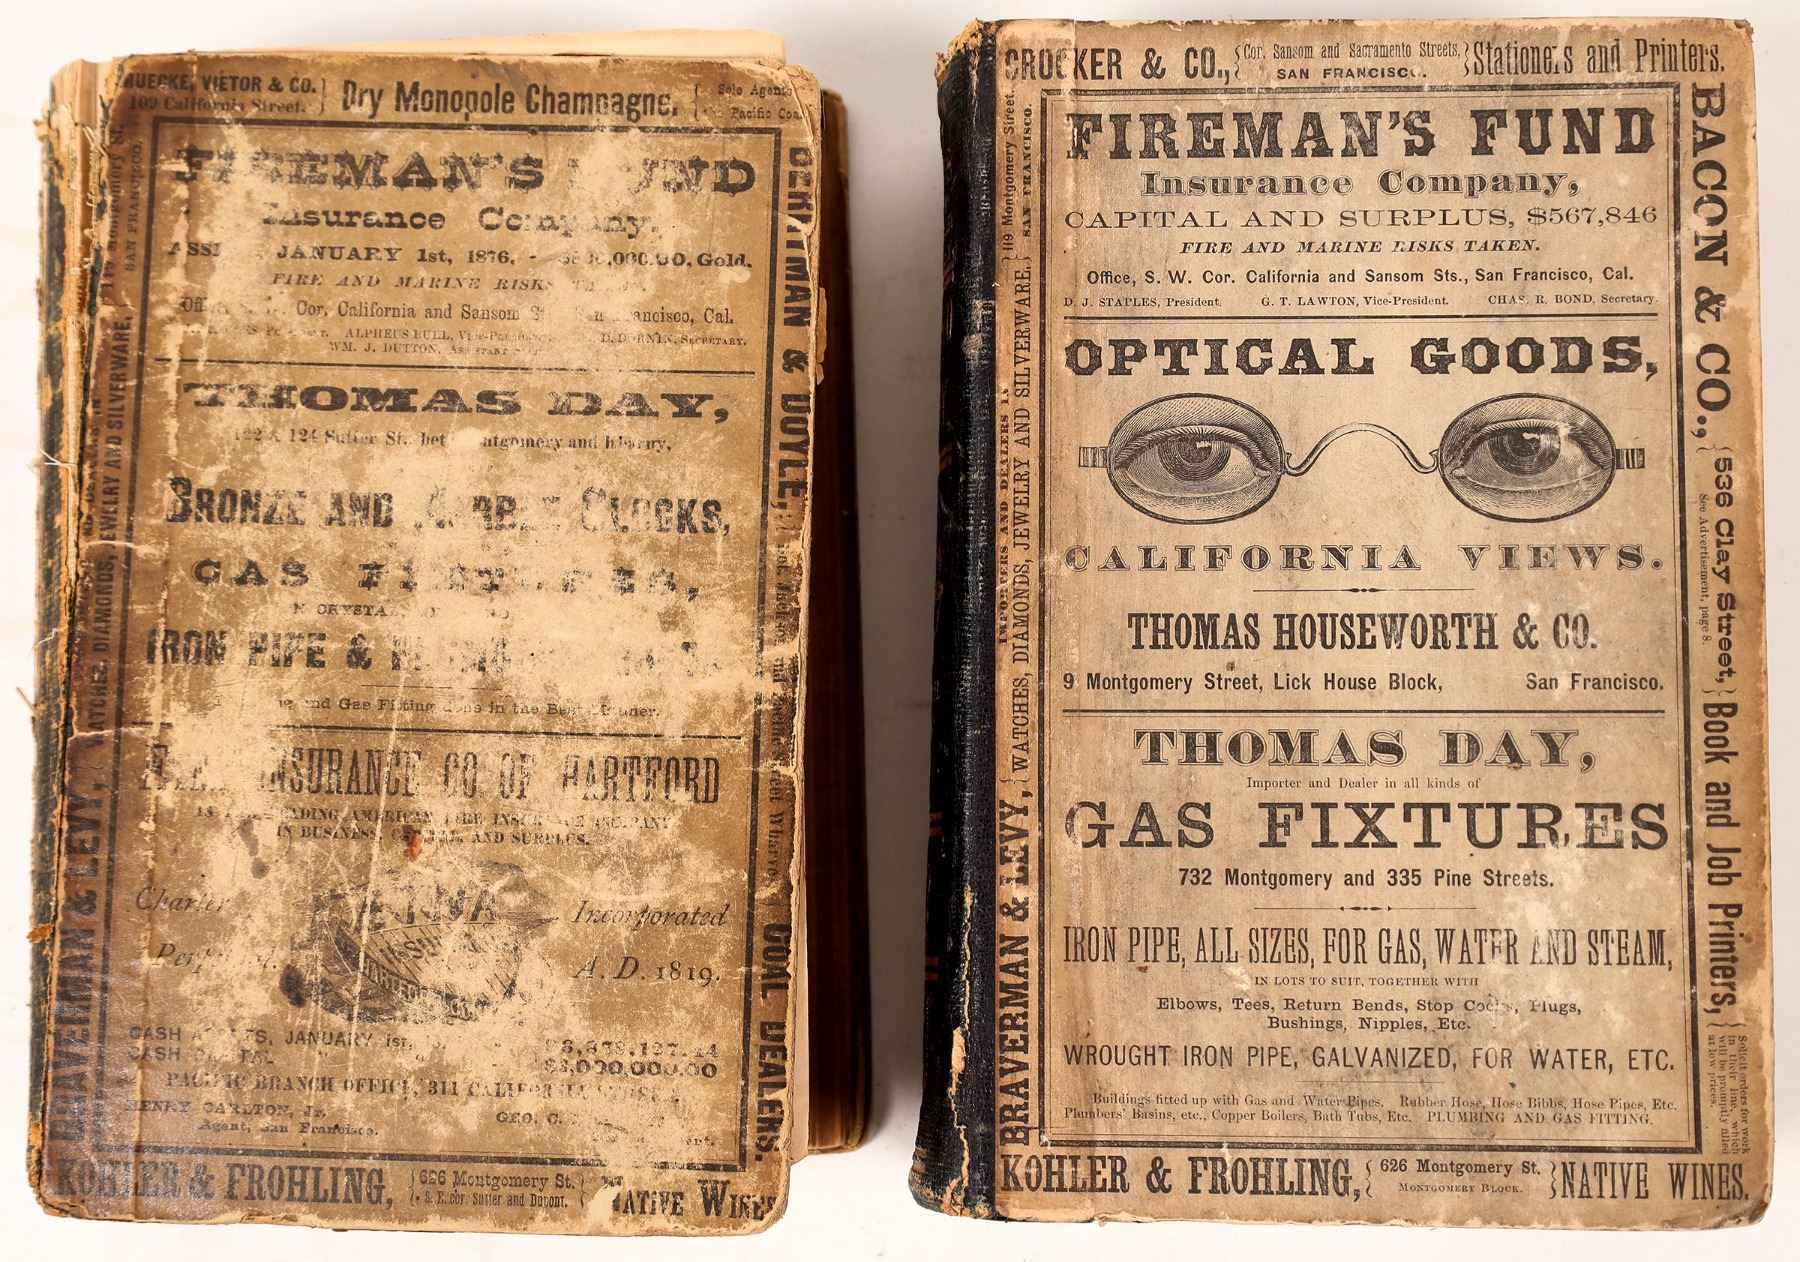 MUECKE, VIETOR & CO.
109 California Street.
Dry Monopole Champagne.
Sole Agents
Pacific
FIREMAN'S FUND
Insurance Company,
JANUARY 1st, 1876. Gold.
FIRE AND MARINE RISKS
Cor. California and Sansom Cal.
ALPHEUS BULL,
WM. J. DUTTON,
THOMAS DAY,
122 & 124 Sutter St. bet Montgomery and Kearny,
BRONZE AND MARBLE CLOCKS,
GAS FIXTURES,
IRON PIPE &
and Gas Fitting done in the Best Manner.
INSURANCE CO OF HARTFORD
LEADING AMERICAN FIRE INSURANCE COMPANY
IN BUSINESS, AND SURPLUS.
Charter Incorporated
Perpetual. A. D. 1819.
ÆTNA
CASH ASSETS, JANUARY 1st,
CASH CAPITAL $3,000,000.00
PACIFIC BRANCH OFFICE, 311 CALIFORNIA
HENRY CARLTON, Jr.
Agent, San Francisco.
GEO. C.
BRAVERMAN & LEVY,
WATCHES, DIAMONDS, JEWELRY AND SILVERWARE,
119 Montgomery St.
SAN FRANCISCO.
& DOYLE,
COAL DEALERS.
KOHLER & FROHLING,
626 Montgomery St.
S. E. cor. Sutter and Dupont.
NATIVE WINES
CROCKER & CO.,
Cor. Sansom and Sacramento Streets,
SAN FRANCISCO.
Stationers and Printers.
FIREMAN'S FUND
Insurance Company,
CAPITAL AND SURPLUS, $567,846
FIRE AND MARINE RISKS TAKEN.
Office, S. W. Cor. California and Sansom Sts., San Francisco, Cal.
D. J. STAPLES, President. G. T. LAWTON, Vice-President. CHAS. R. BOND, Secretary.
OPTICAL GOODS,
CALIFORNIA VIEWS.
THOMAS HOUSEWORTH & CO.
9 Montgomery Street, Lick House Block, San Francisco.
THOMAS DAY,
Importer and Dealer in all kinds of
GAS FIXTURES
732 Montgomery and 335 Pine Streets.
IRON PIPE, ALL SIZES, FOR GAS, WATER AND STEAM,
IN LOTS TO SUIT, TOGETHER WITH
Elbows, Tees, Return Bends, Stop Cocks, Plugs,
Bushings, Nipples, Etc.
WROUGHT IRON PIPE, GALVANIZED, FOR WATER, ETC.
Buildings fitted up with Gas and Water Pipes. Rubber Hose, Hose Bibbs, Hose Pipes, Etc.
Plumbers' Basins, etc., Copper Boilers, Bath Tubs, Etc. PLUMBING AND GAS FITTING.
BRAVERMAN & LEVY,
IMPORTERS AND DEALERS IN
WATCHES, DIAMONDS, JEWELRY AND SILVERWARE.
119 Montgomery Street.
SAN FRANCISCO.
BACON & CO.,
536 Clay Street,
See Advertisement, page 8.
Book and Job Printers,
Solicit orders for work
in their line, which
will be promptly filled
at low prices.
KOHLER & FROHLING,
626 Montgomery St.
MONTGOMERY BLOCK.
NATIVE WINES.